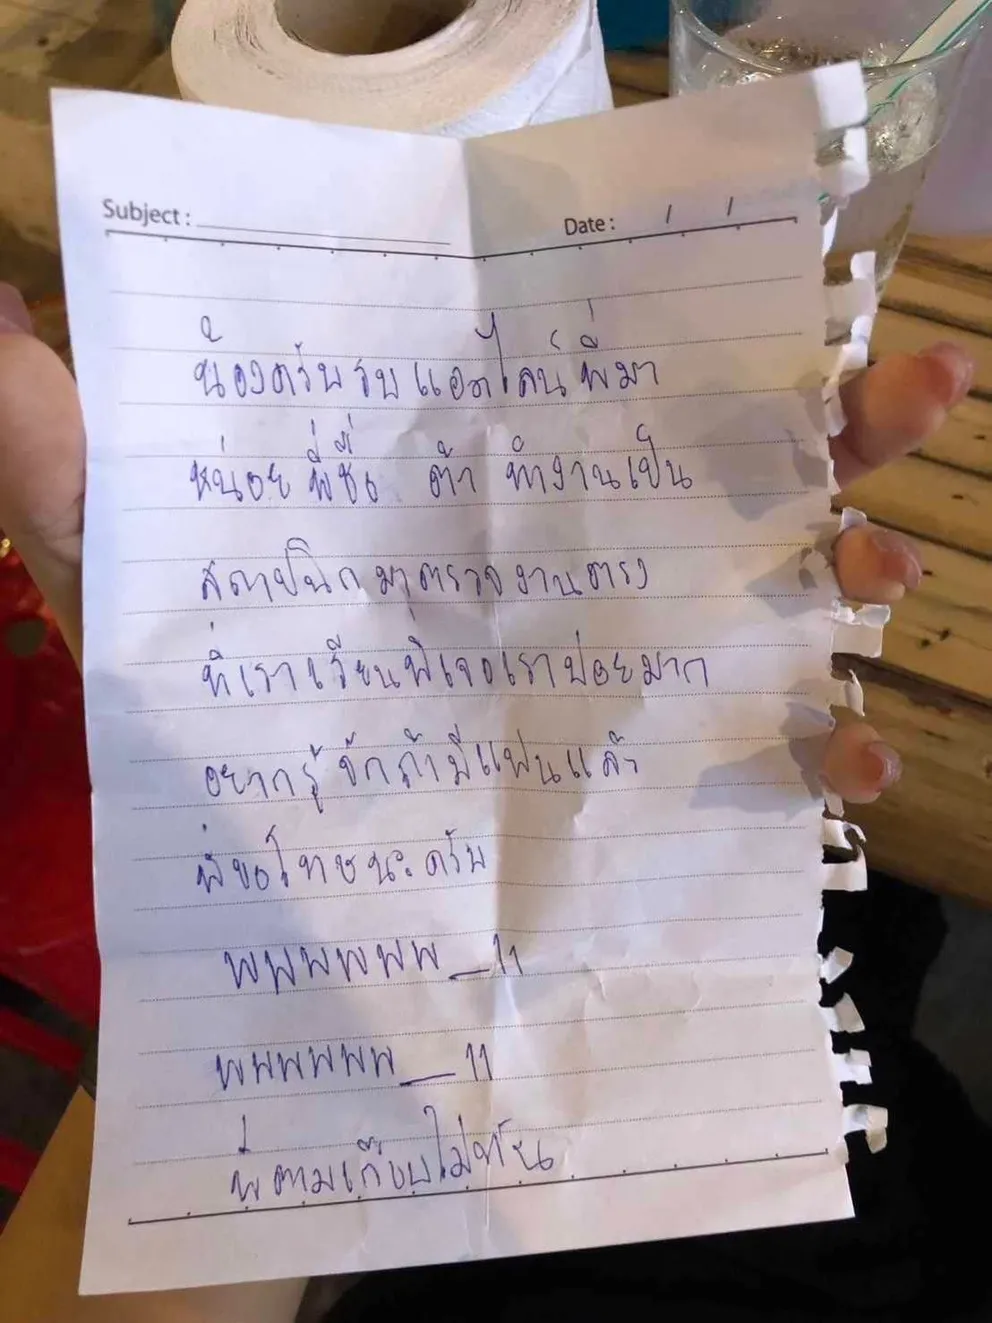 Subject : Date : / /
น้องครับ รบ แอดไลน์ พี่มา
หน่อย พี่ชื่อ ต้า ทำงานเป็น
สถาปนิก มาตรวจ งานตรง
ที่เราเรียน พี่เจอเราบ่อยมาก
อยากรู้จักถ้ามีแฟนแล้ว
พี่ขอโทษ นะ ครับ
พพพพพพ_11
พพพพพพ_11
พี่ตามเกือบไม่ทัน